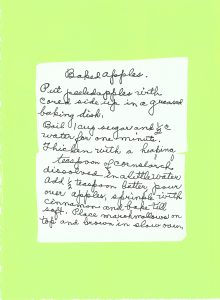 Baked Apples.
Put peeled apples with
cored side up in a greased
baking dish.
Boil 1 cup sugar and ½ c
water for one minute
Thicken with a heaping
teaspoon of cornstarch
dissolved in a little water
Add ½ teaspoon butter pour
over apples, sprinkle with
cinnamon and bake till
soft. Place marshmallows on
top and brown in slow oven